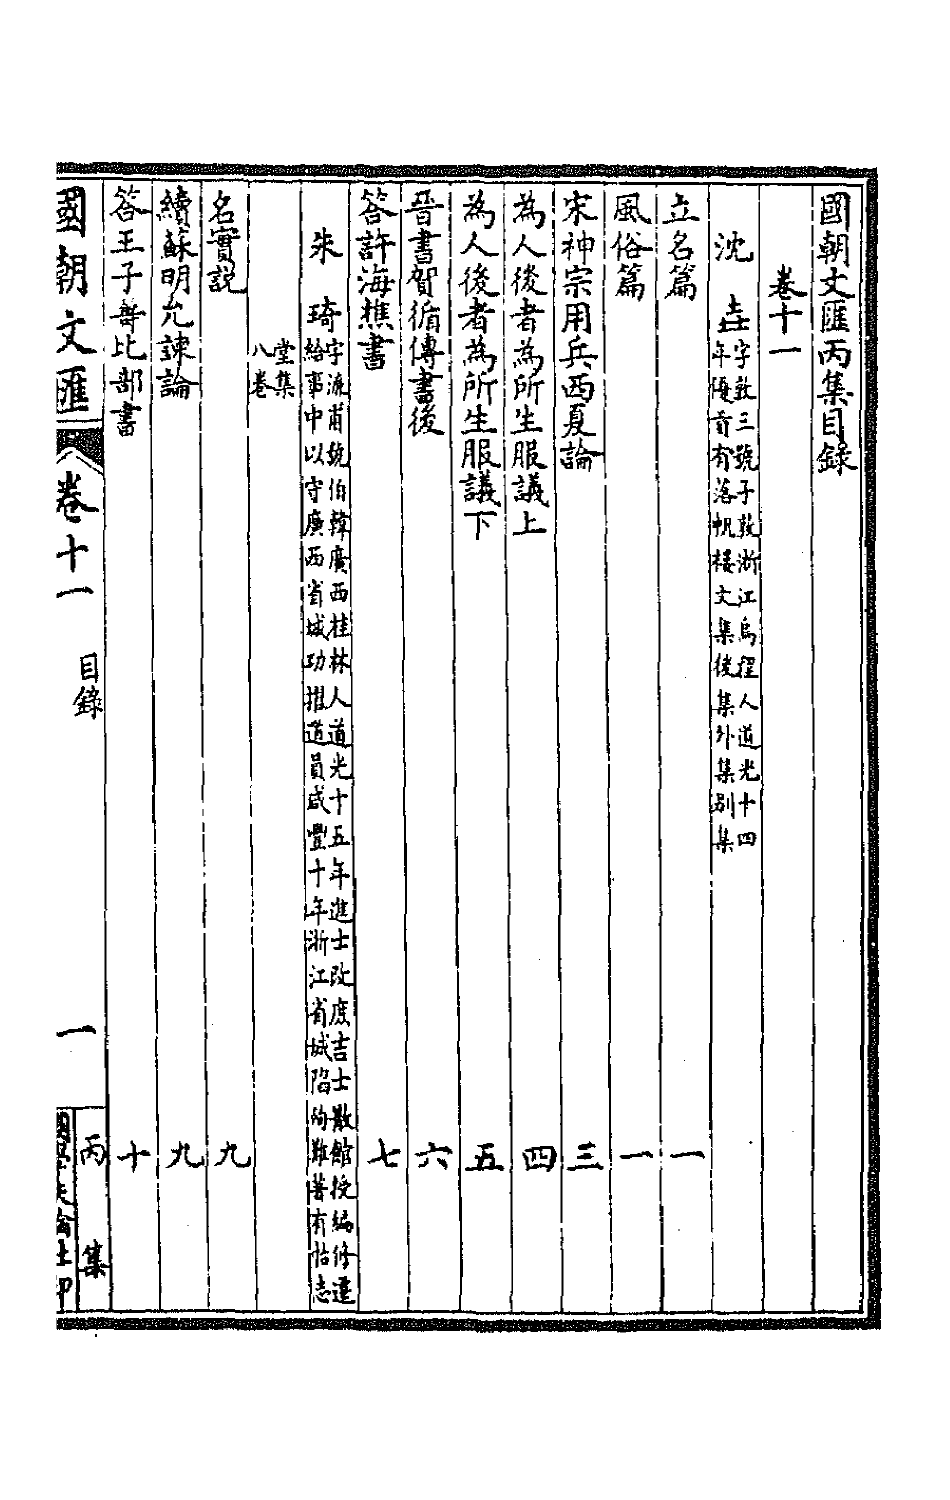 國朝文匯丙集目錄
卷十一
沈垚字敦三號子敦浙江烏程人道光十四
年優貢有落帆樓文集後集外集別集
立名篇 一
風俗篇 一
宋神宗用兵西夏論 三
為人後者為所生服議上 四
為人後者為所生服議下 五
晉書賀循傳書後 六
答許海樵書 七
朱琦字濂甫號伯韓廣西桂林人道光十五年進士改庶吉士散館授編修遷
給事中以守廣西省城功擢道員咸豐十年浙江省城陷殉難著有怡志
堂集
八卷
名實説 九
續蘇明允諫論 九
答王子壽比部書 十
國朝文匯 卷十一 目錄 一 丙集
國學扶輪社印